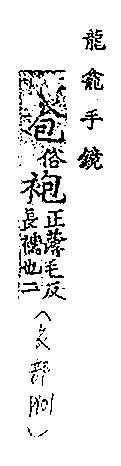 龍龕手鏡
俗袍正薄毛反長襦也二(衣部